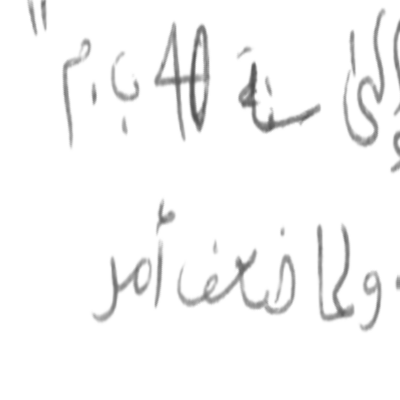 سنة 40 ب.م "
ولما ضعف أمر